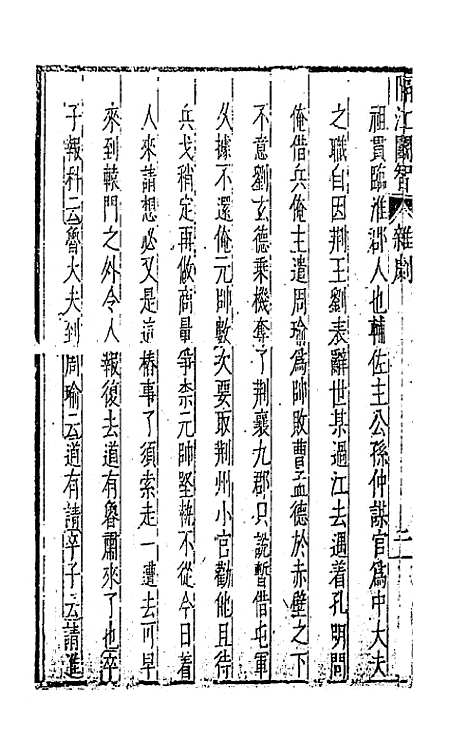 隔江鬭智 雜劇 二
祖貫臨淮郡人也輔佐主公孫仲謀官爲中大夫
之職自因荆王劉表辭世某過江去遇着孔明問
俺借兵俺主遣周瑜爲帥敗曹孟德於赤壁之下
不意劉玄德乗機奪了荆襄九郡只說暫借屯軍
久據不還俺元帥數次要取荆州小官勸他且待
兵戈稍定再做商量爭柰元帥堅執不從今日着
人來請想必又是這樁事了須索走一遭去可早
來到轅門之外令人報復去道有魯肅來了也卒
子報科云魯大夫到周瑜云道有請卒子云請進